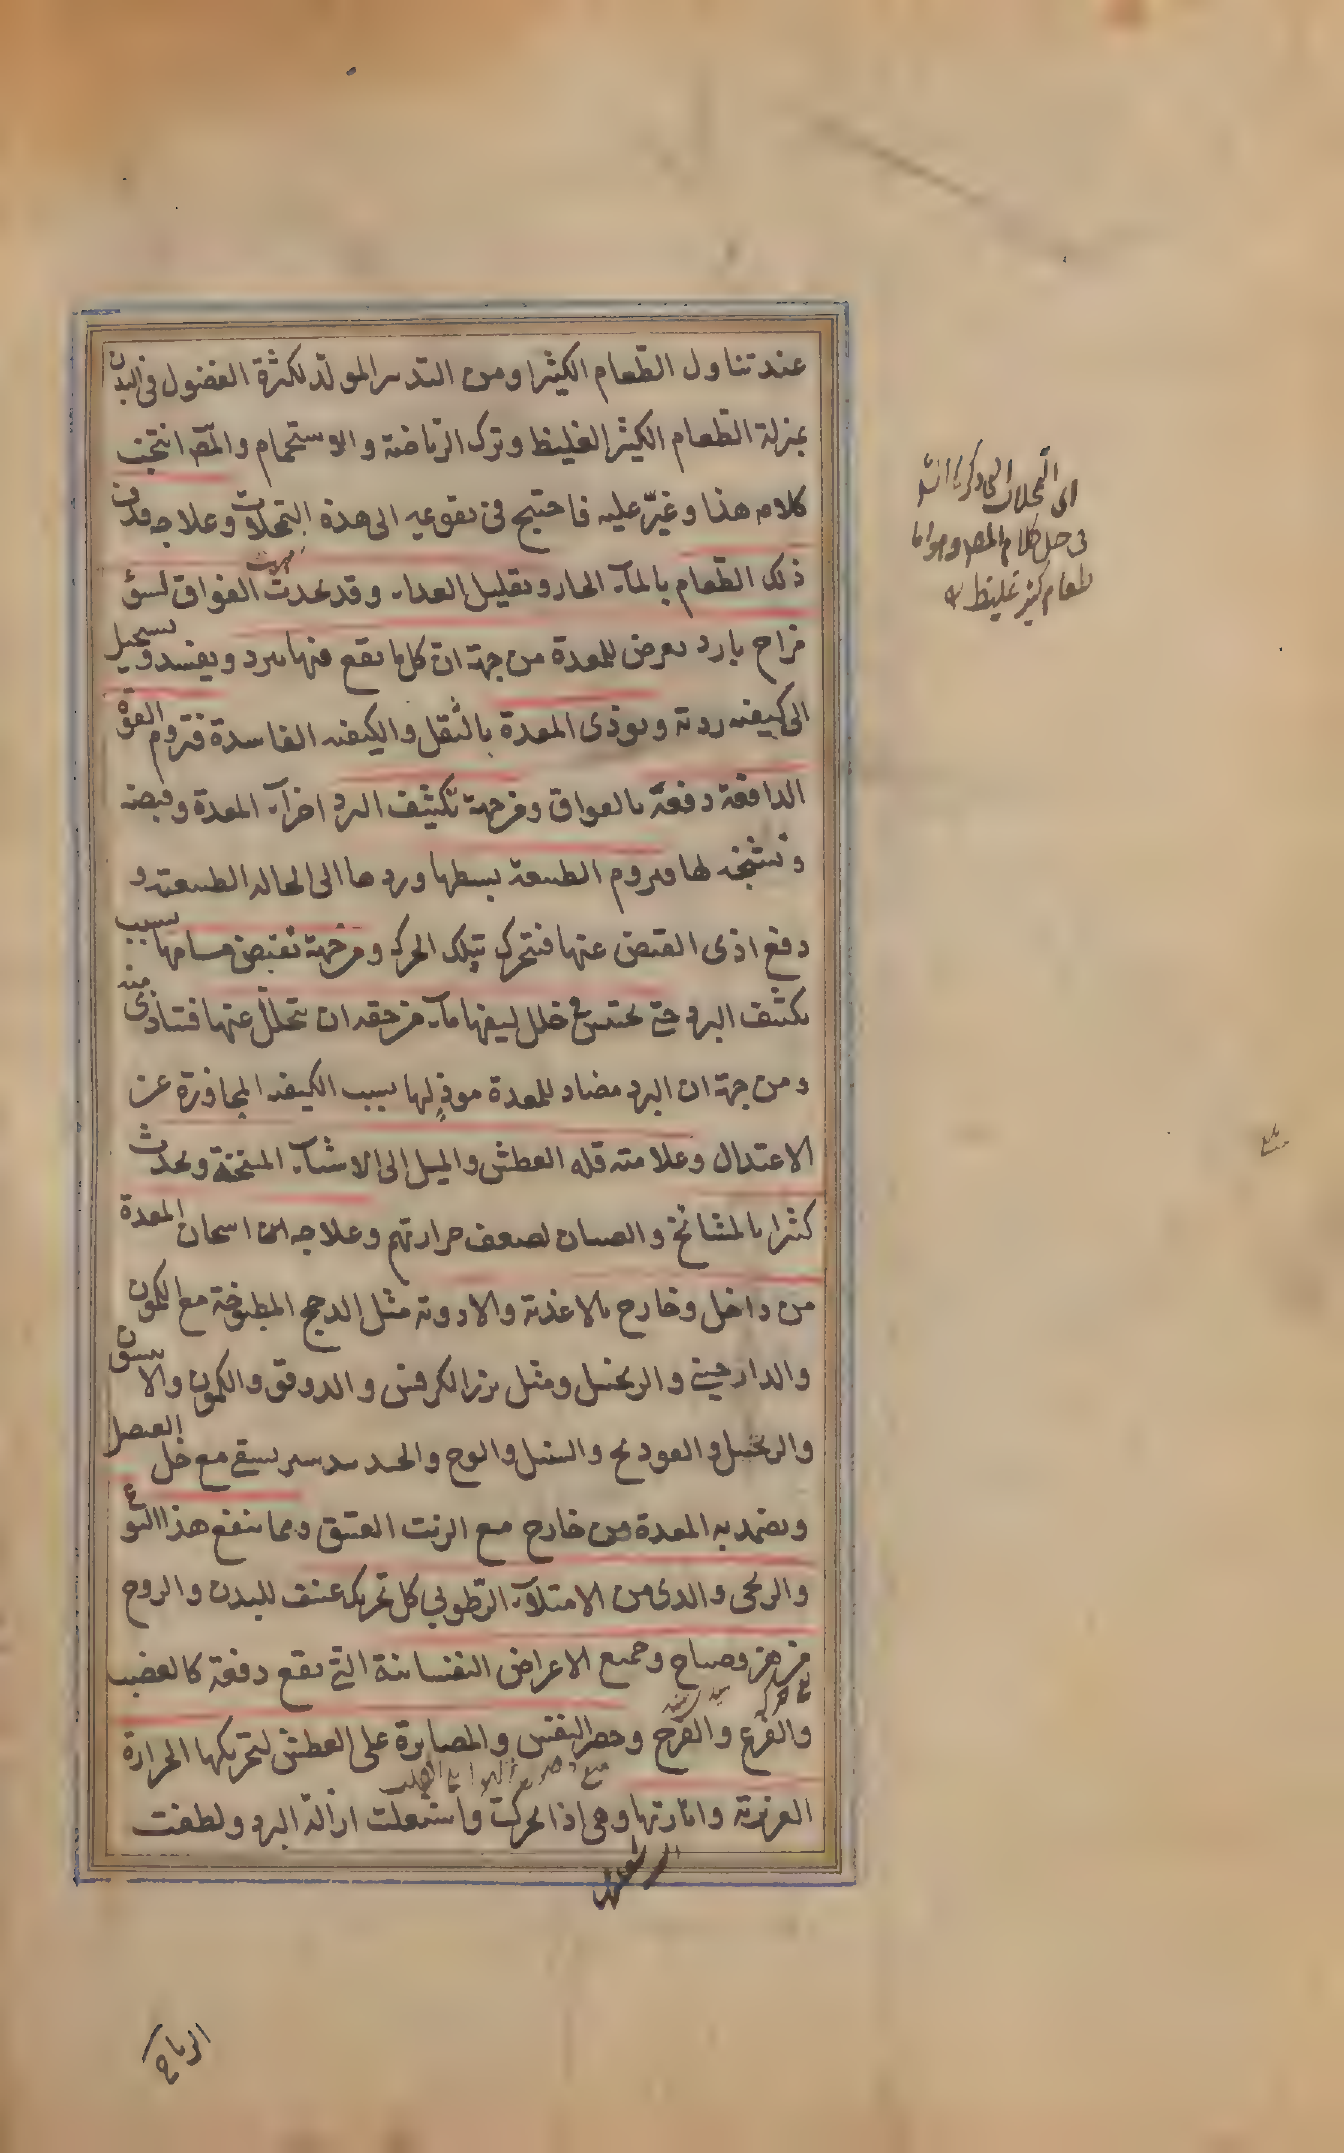 عند تناول الطعام الكثير او من التدبير المولد لكثرة الفضول فى البدن
بمنزلة الطعام الكثير الغليظ وترك الرياضة والاستحمام والمص انتخب
كلامه هذا وغيّر عليه فاحتيج فى تقويمه الى هذه التمحلات وعلاجه قذف
ذلك الطعام بالماء الحار وتقليل الغذاء وقد يحدث الفواق لسوء
مزاج بارد يعرض للمعدة من جهة ان كل ما يقع فيها يبرد ويفسد ويستحيل
الى كيفية ردية ويوذى المعدة بالثقل والكيفية الفاسدة فتروم القوة
الدافعة دفعه بالفواق ومن جهة تكثيف البرد اجزاء المعدة وقبضه
وتشنجه لها فيروم الطبيعة بسطها وردها الى الحالة الطبيعية و
دفع اذى القبض عنها فتتحرك بتلك الحركة ومن جهة تقبض مسامها بسبب
تكثيف البرد حتى يحتبس فى خلل ليفها ما من حقه ان يتحلل عنها فتتاذى منه
ومن جهة ان البرد مضاد للمعدة موذٍ لها بسبب الكيفية المجاوزة عن
الاعتدال وعلامته قلة العطش والميل الى الاشياء المسخنة ويحدث
كثيرا بالمشائخ والصبيان لضعف حرارتهم وعلاجه اسخان المعدة
من داخل وخارج بالاغذية والادوية مثل الدجج المطبوخة مع الكمون
والدارجينى والزنجبيل ومثل بزر الكرفس والدوقو والكمون والانيسون
والزنجبيل والفودنج والسنبل والوج والجندبيدستر يسقى مع خل العنصل
ويضمد به المعدة من خارج مع الزيت العتيق ومما ينفع هذا النوع
والريحى والذى من الامتلاء الرطوبى كل تحريك عنيف للبدن والروح
من هز وصياح وجميع الاعراض النفسانية التى تقع دفعة كالغضب
والفزع والفرح وحصر النفس والمصابرة على العطش لتحريكها الحرارة
الغريزية واثارتها وهى اذا تحركت واشتعلت ازالة البرد ولطفت
الرياح
اى التمحلات التى ذكرها
فى حل كلام المص وهو اما
طعام كثير غليظ